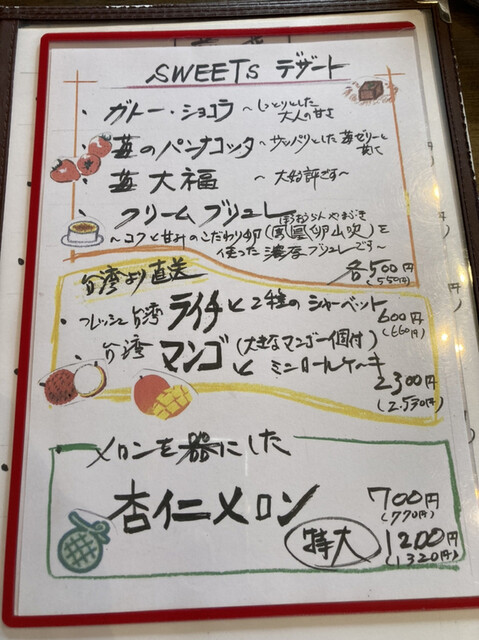 SWEETS デザート
・ガトー・ショコラ ～しっとりとした
大人の甘さ
・苺のパンナコッタ ～サッパリとした苺ゼリーと
・苺大福 ～大好評です～
・クリームブリュレ
～コクと甘みのこだわり卵(鳳凰卵山吹)を
ほうおうらんやまぶき
使った濃厚ブリュレです～
各500円
(550円)
台湾より直送
・フレッシュ台湾ライチと2種のシャーベット
600円
(660円)
・台湾マンゴ(大きなマンゴー個付)
とミニロールケーキ
2300円
(2.530円)
・メロンを器にした
杏仁メロン 700円
(770円)
特大 1200円
(1320円)